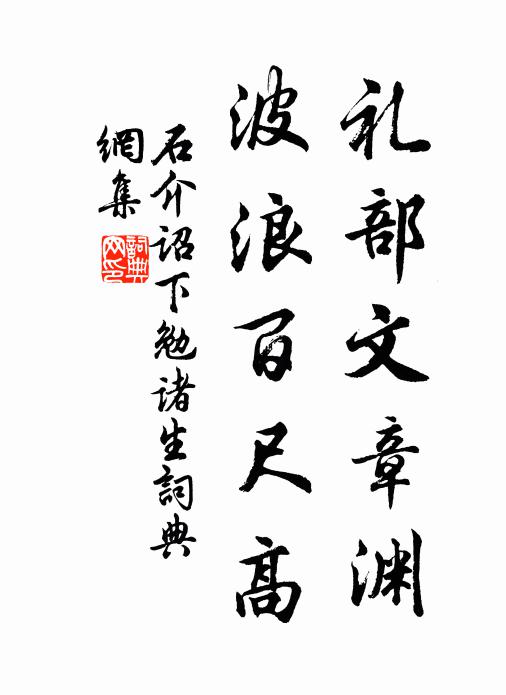 礼部文章渊
波浪百尺高
石介诏下勉诸生詞典
網集
詞典
网印